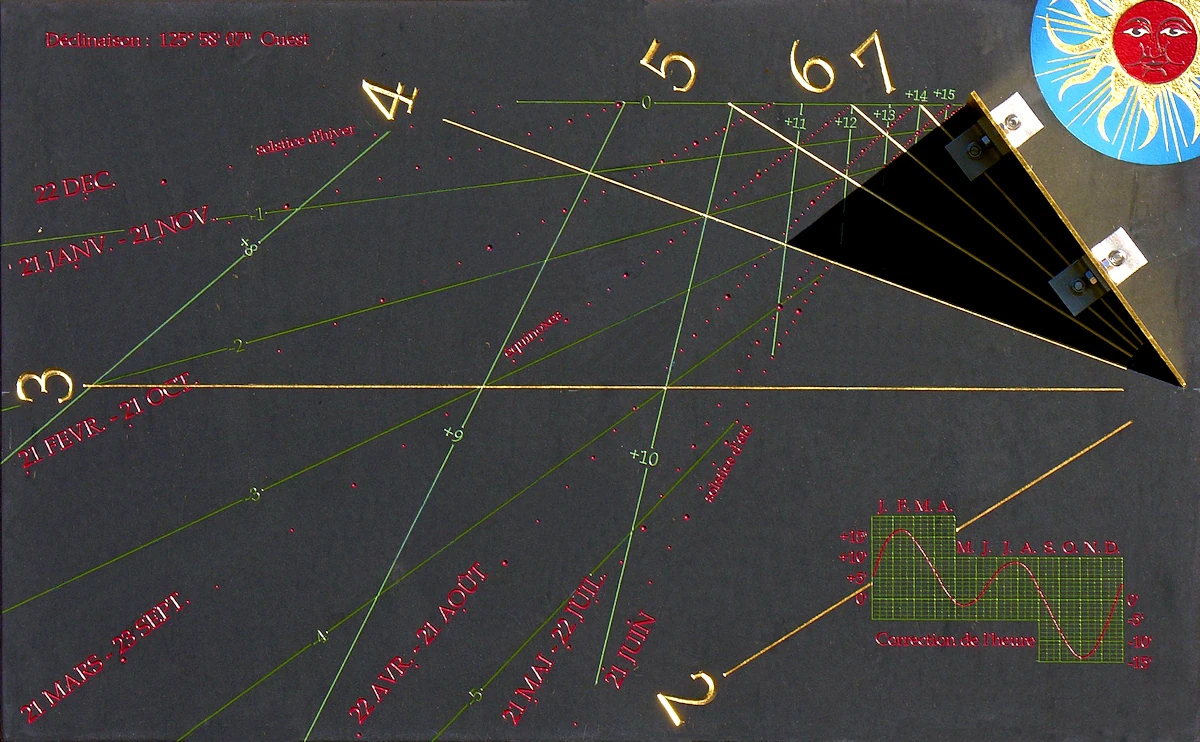 Déclinaison : 125° 58' 07" Ouest
4
5
6
7
0
+14
+15
+11
+12
+13
solstice d'hiver
22 DEC.
21 JANV. - 21 NOV.
-1
+8
-2
3
equinoxes
21 FEVR. - 21 OCT.
+9
+10
solstice d'été
-3
J. F. M. A.
+15'
+10'
+5'
0'
M. J. J. A. S. O. N. D.
0'
-5'
-10'
-15'
Correction de l'heure
21 MARS - 23 SEPT.
22 AVR. - 21 AOÛT
21 MAI - 22 JUIL.
21 JUIN
-4
-5
2